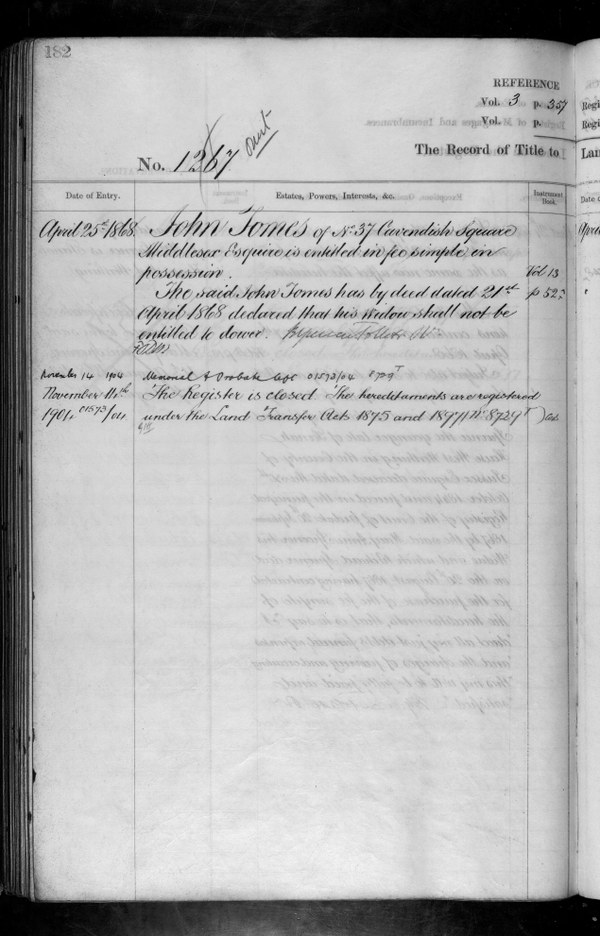 182
REFERENCE
Vol. 3 p. 357
Vol. p.
The Record of Title to
No. 1267
Date of Entry.
Estates, Powers, Interests, &c.
Instrument Book.
April 25th 1868 John Tomes of No. 37 Cavendish Square
Middlesex Esquire is entitled in fee simple in
possession. Vol 13
The said John Tomes has by deed dated 21st p 52
April 1868 declared that his widow shall not be
entitled to dower.
November 14 1904 Memorial & Probate 01573/04 8729T
November 14th The Register is closed The hereditaments are registered
1904 01573/04 under the Land Transfer Acts 1875 and 1897 No 8729T
Regi
Regi
Lan
Date o
April